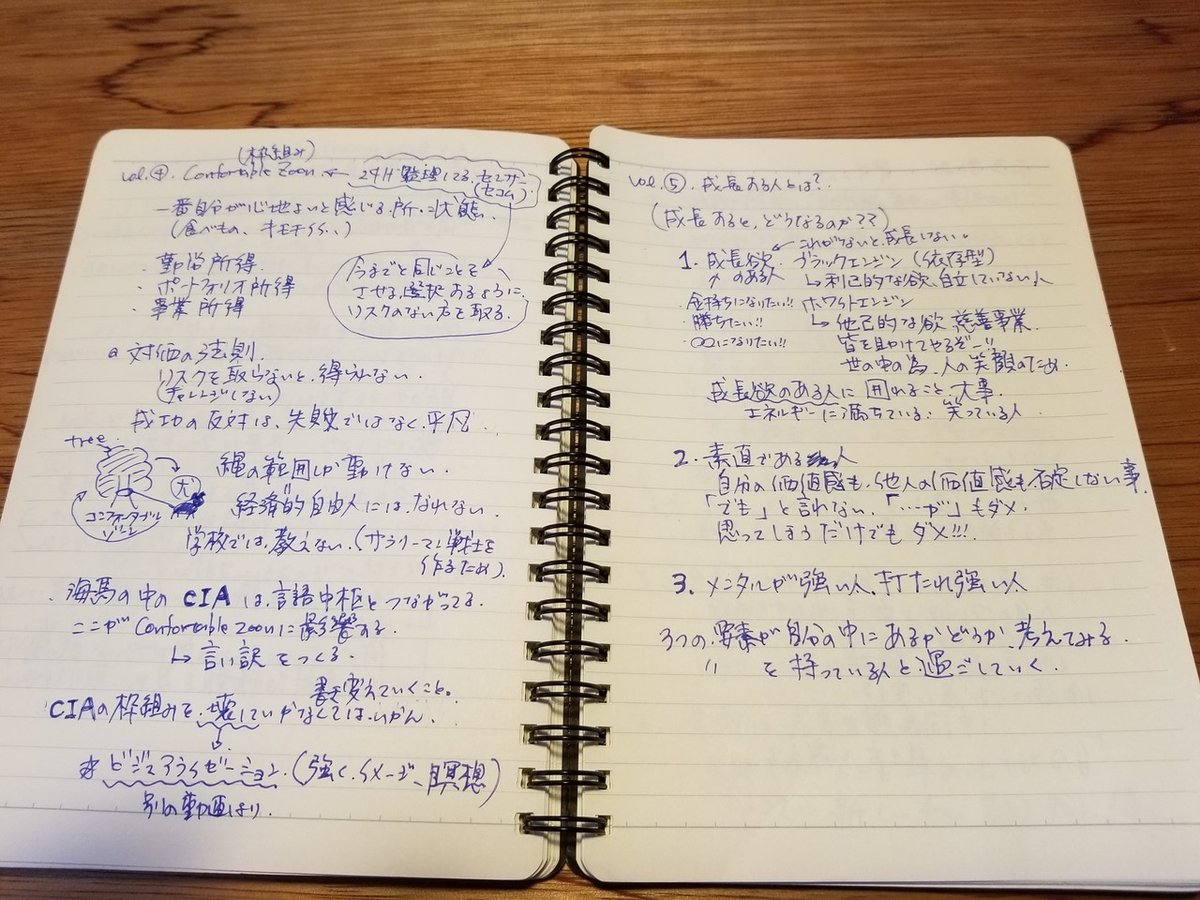 (枠組み)
vol.④. Confortable Zoon ← 24H 監理してる.センサー
(セコム)
一番自分が心地よいと感じる.所.状態.
(食べもの、キモチイイ、)
・勤労所得.
・ポートフォリオ所得
・事業所得
今までと同じことを
させる.選択するように.
リスクのない方を取る.
対価の法則.
リスクを取らないと.得られない.
(チャレンジしない)
成功の反対は、失敗ではなく平凡.
tree.
犬
コンフォータブル
ゾーン
縄の範囲しか動けない.
経済的自由人には、なれない.
学校では、教えない.(サラリーマン戦士を
作るため).
・海馬の中の CIA は、言語中枢とつながってる.
ここが Confortable Zoon に影響する.
↳ 言い訳をつくる.
書き変えていくこと。
・CIAの枠組みを、壊していかなくてはいかん.
☆ ビジュアライゼーション.(強く、イメージ、瞑想)
別の動画より.
vol.⑤. 成長する人とは?.
(成長すると、どうなるのか??)
← これがないと、成長しない。
1. 成長欲 ブラックエンジン(依存型)
のある人 ↳ 利己的な欲.自立していない人
・金持ちになりたい!! ホワイトエンジン
・勝ちたい!! ↳ 他己的な欲.慈善事業.
・〇〇になりたい!! 皆を助けてやるぞー!!
世の中の為、人の笑顔のため.
成長欲のある人に囲れること、大事.
エネルギーに満ちている、笑っている人.
2. 素直である人
自分の価値感も、他人の価値感も否定しない事.
「でも」と言わない.「…が」もダメ.
思ってしまうだけでもダメ!!!.
3. メンタルが強い人.打たれ強い人
3つの.要素が自分の中にあるかどうか、考えてみる.
〃 を持っている人と過ごしていく.